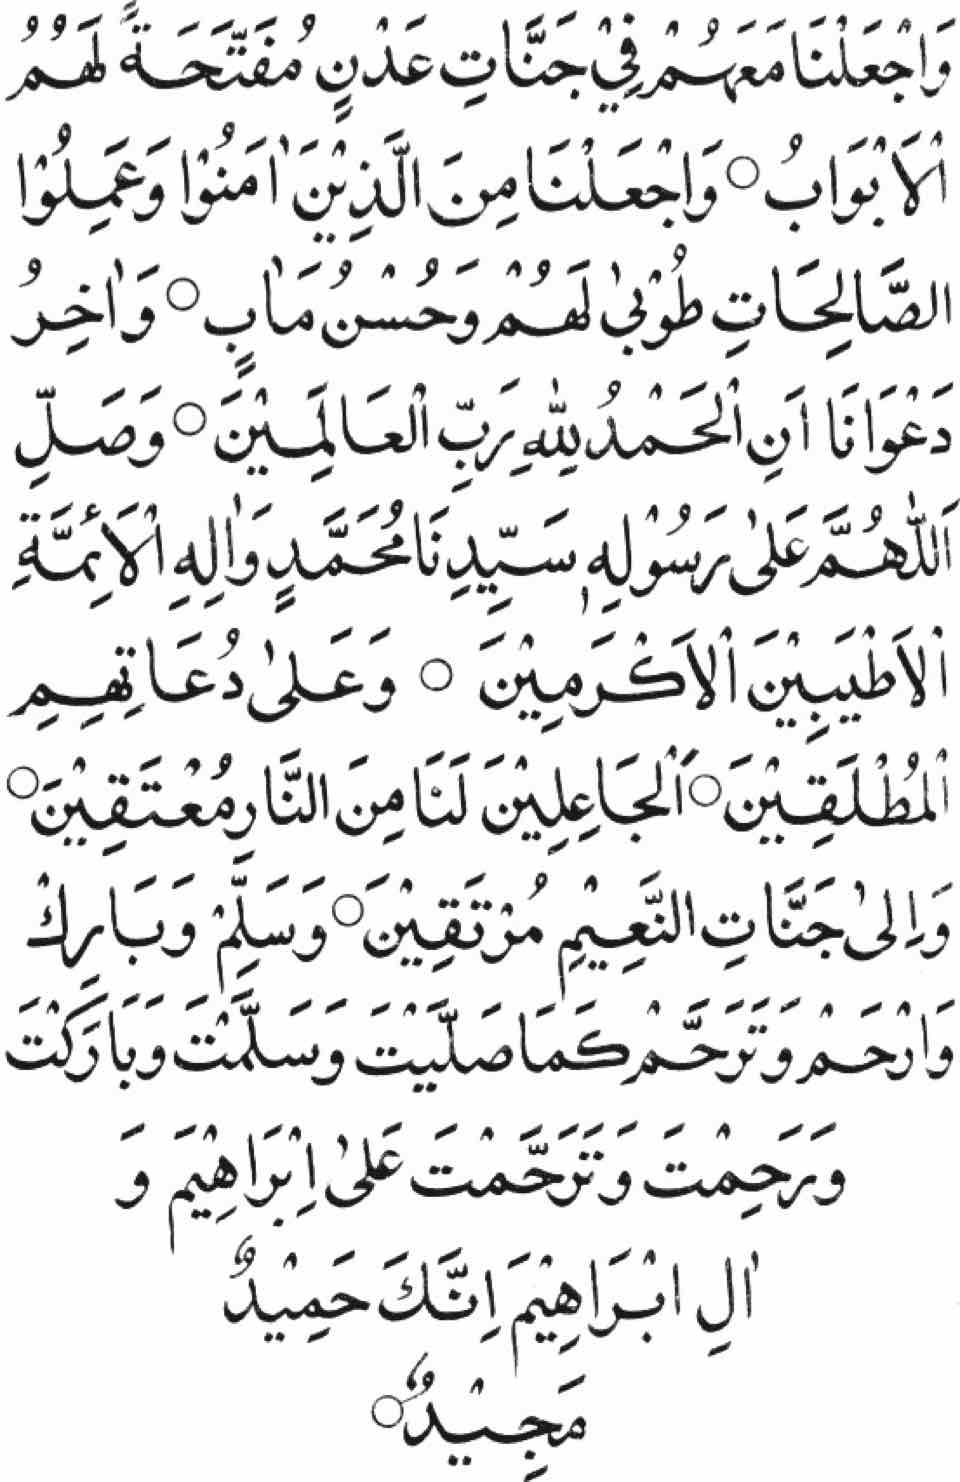 وَاجْعَلْنَا مَعَهُمْ فِيْ جَنَّاتِ عَدْنٍ مُفَتَّحَةً لَهُمُ
الْاَبْوَابُ ○ وَاجْعَلْنَا مِنَ الَّذِيْنَ اٰمَنُوْا وَعَمِلُوْا
الصَّالِحَاتِ طُوْبىٰ لَهُمْ وَحُسْنُ مَاٰبٍ ○ وَاٰخِرُ
دَعْوَانَا اَنِ الْحَمْدُ لِلّٰهِ رَبِّ الْعَالَمِيْنَ ○ وَصَلِّ
اَللّٰهُمَّ عَلىٰ رَسُوْلِهٖ سَيِّدِنَا مُحَمَّدٍ وَاٰلِهِ الْاَئِمَّةِ
الْاَطْيَبِيْنَ الْاَكْرَمِيْنَ ○ وَعَلىٰ دُعَاتِهِمِ
الْمُطْلَقِيْنَ ○ اَلْجَاعِلِيْنَ لَنَا مِنَ النَّارِ مُعْتَقِيْنَ ○
وَاِلىٰ جَنَّاتِ النَّعِيْمِ مُرْتَقِيْنَ ○ وَسَلِّمْ وَبَارِكْ
وَارْحَمْ وَتَرَحَّمْ كَمَا صَلَّيْتَ وَسَلَّمْتَ وَبَارَكْتَ
وَرَحِمْتَ وَتَرَحَّمْتَ عَلىٰ اِبْرَاهِيْمَ وَ
اٰلِ ابْرَاهِيْمَ اِنَّكَ حَمِيْدٌ
مَجِيْدٌ ○